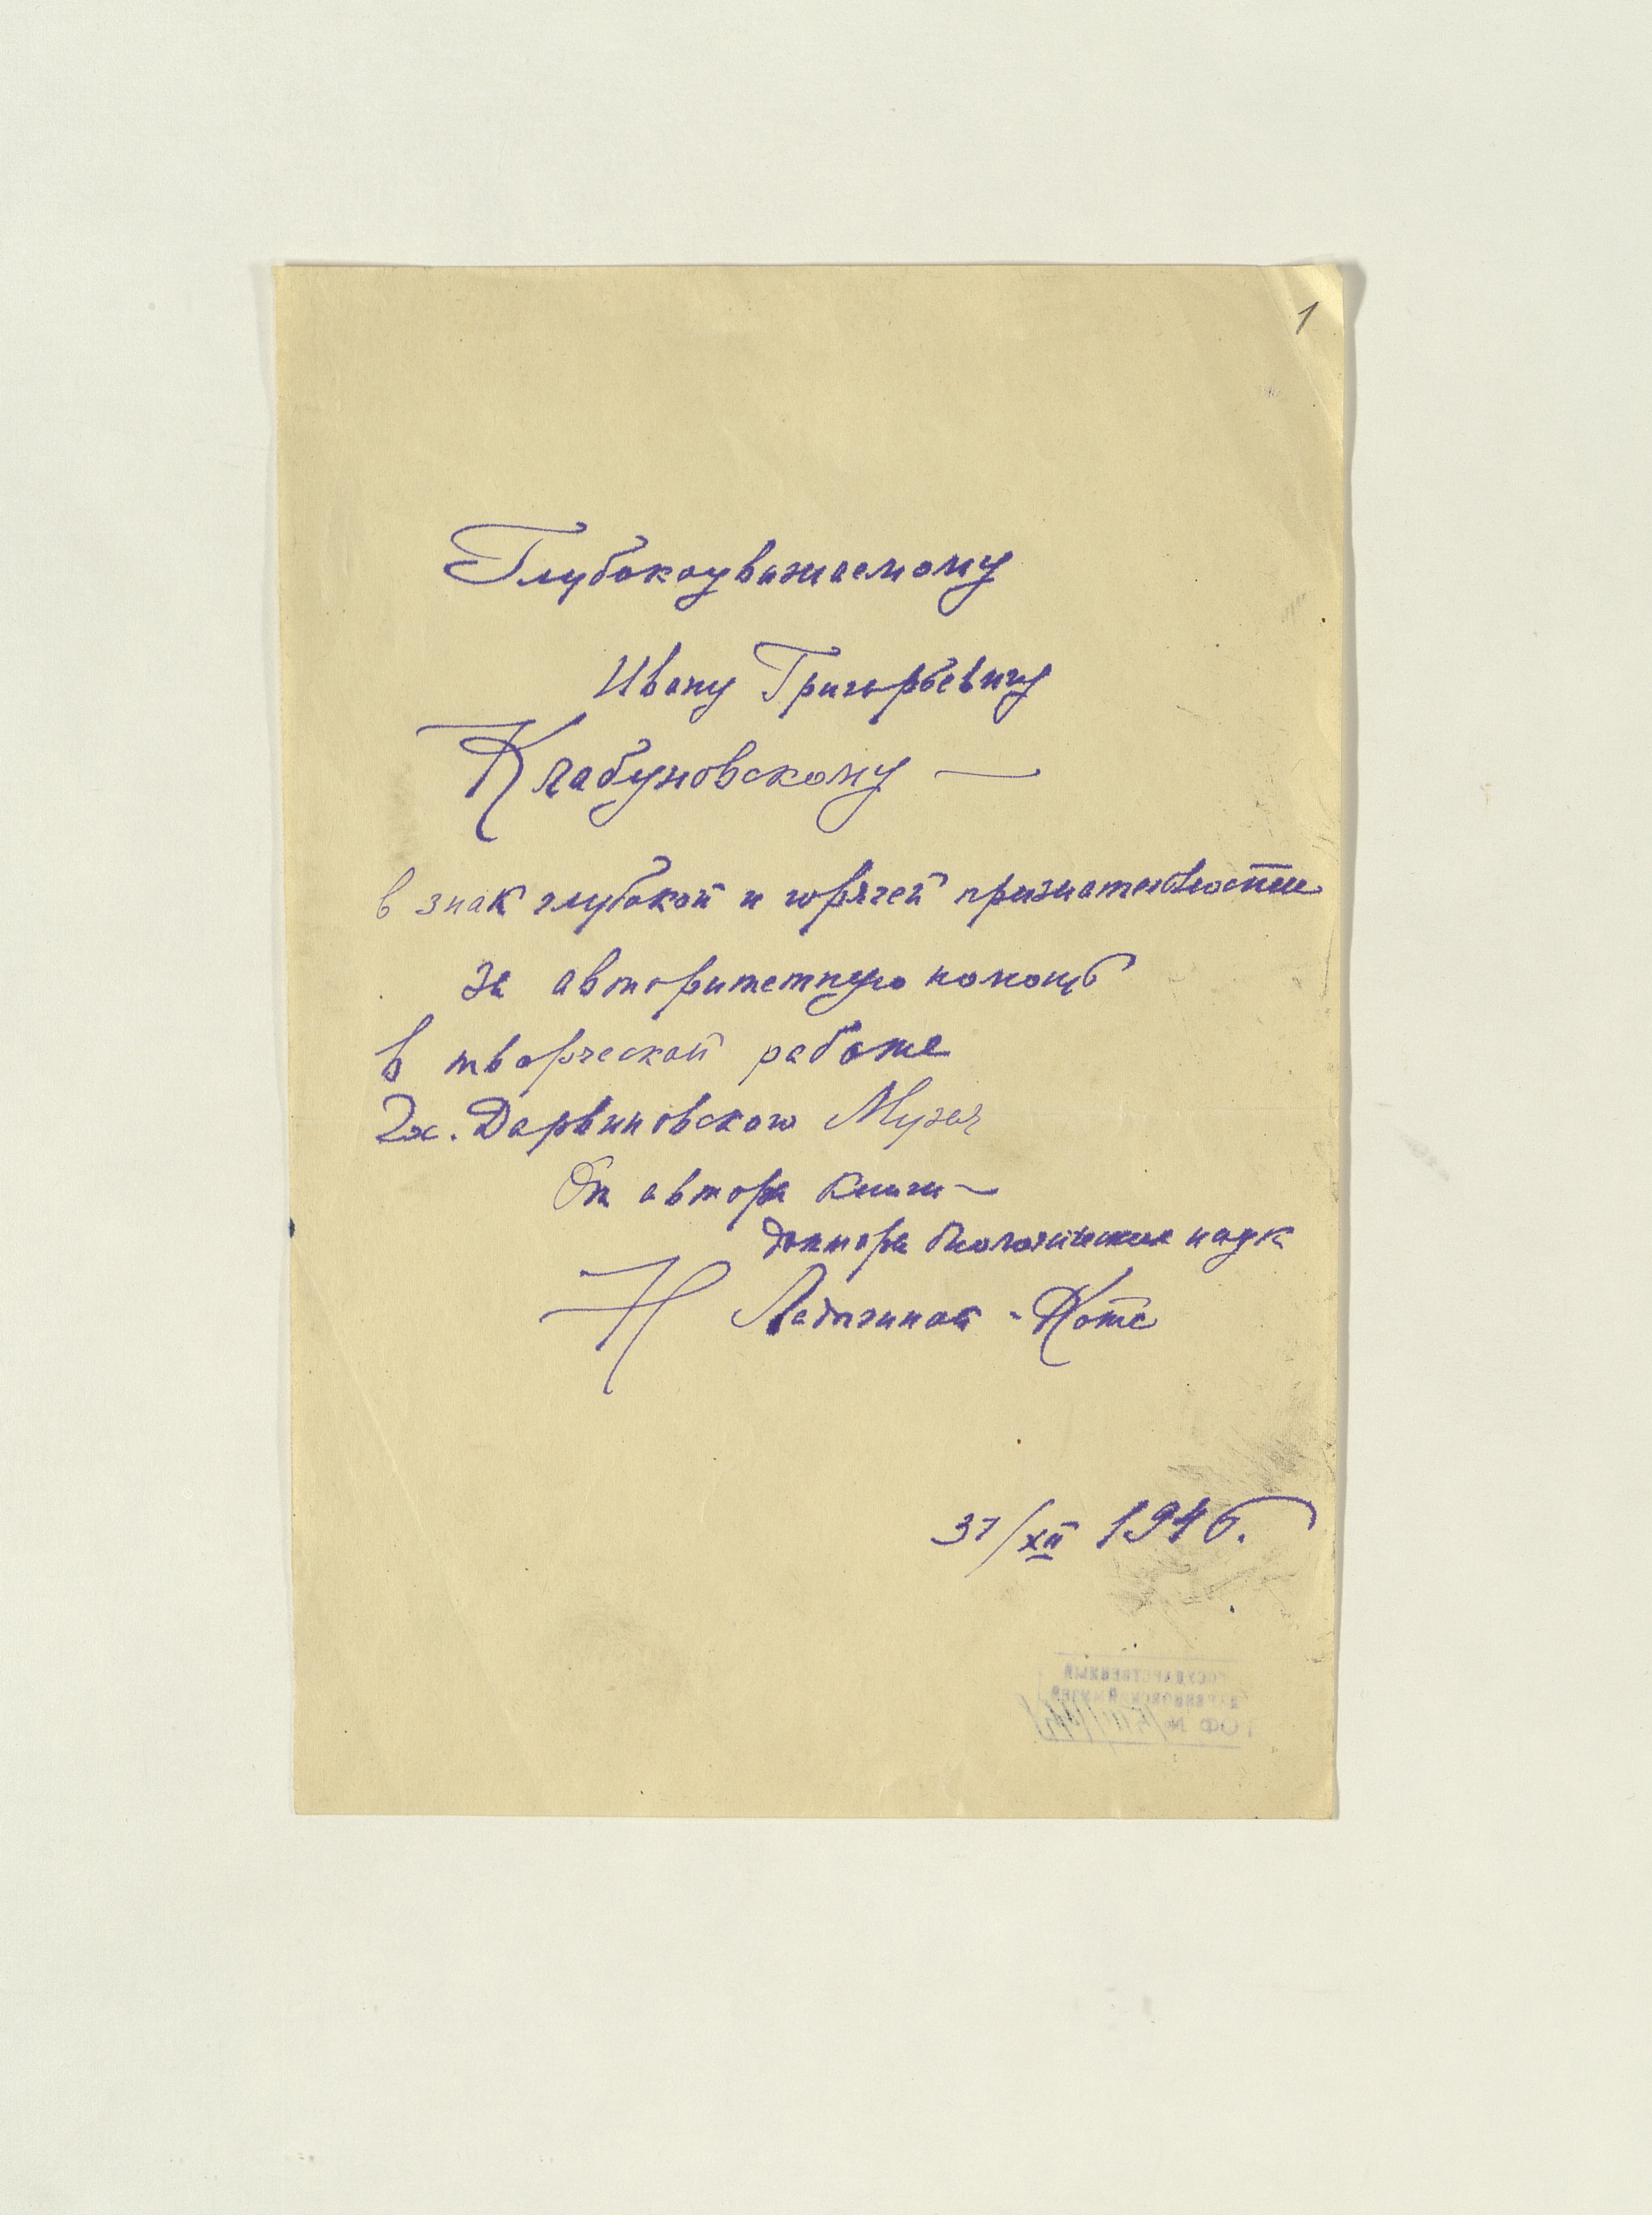 1
Глубокоуважаемому
Ивану Григорьевичу
Клабуновскому —
в знак глубокой и горячей признательности
за авторитетную помощь
в творческой работе
Гос. Дарвиновского Музея
От автора книги —
доктора биологических наук
Н Ладыгиной - Котс
31/XII 1946.
ГОСУДАРСТВЕННЫЙ
ДАРВИНОВСКИЙ МУЗЕЙ
ОФ №